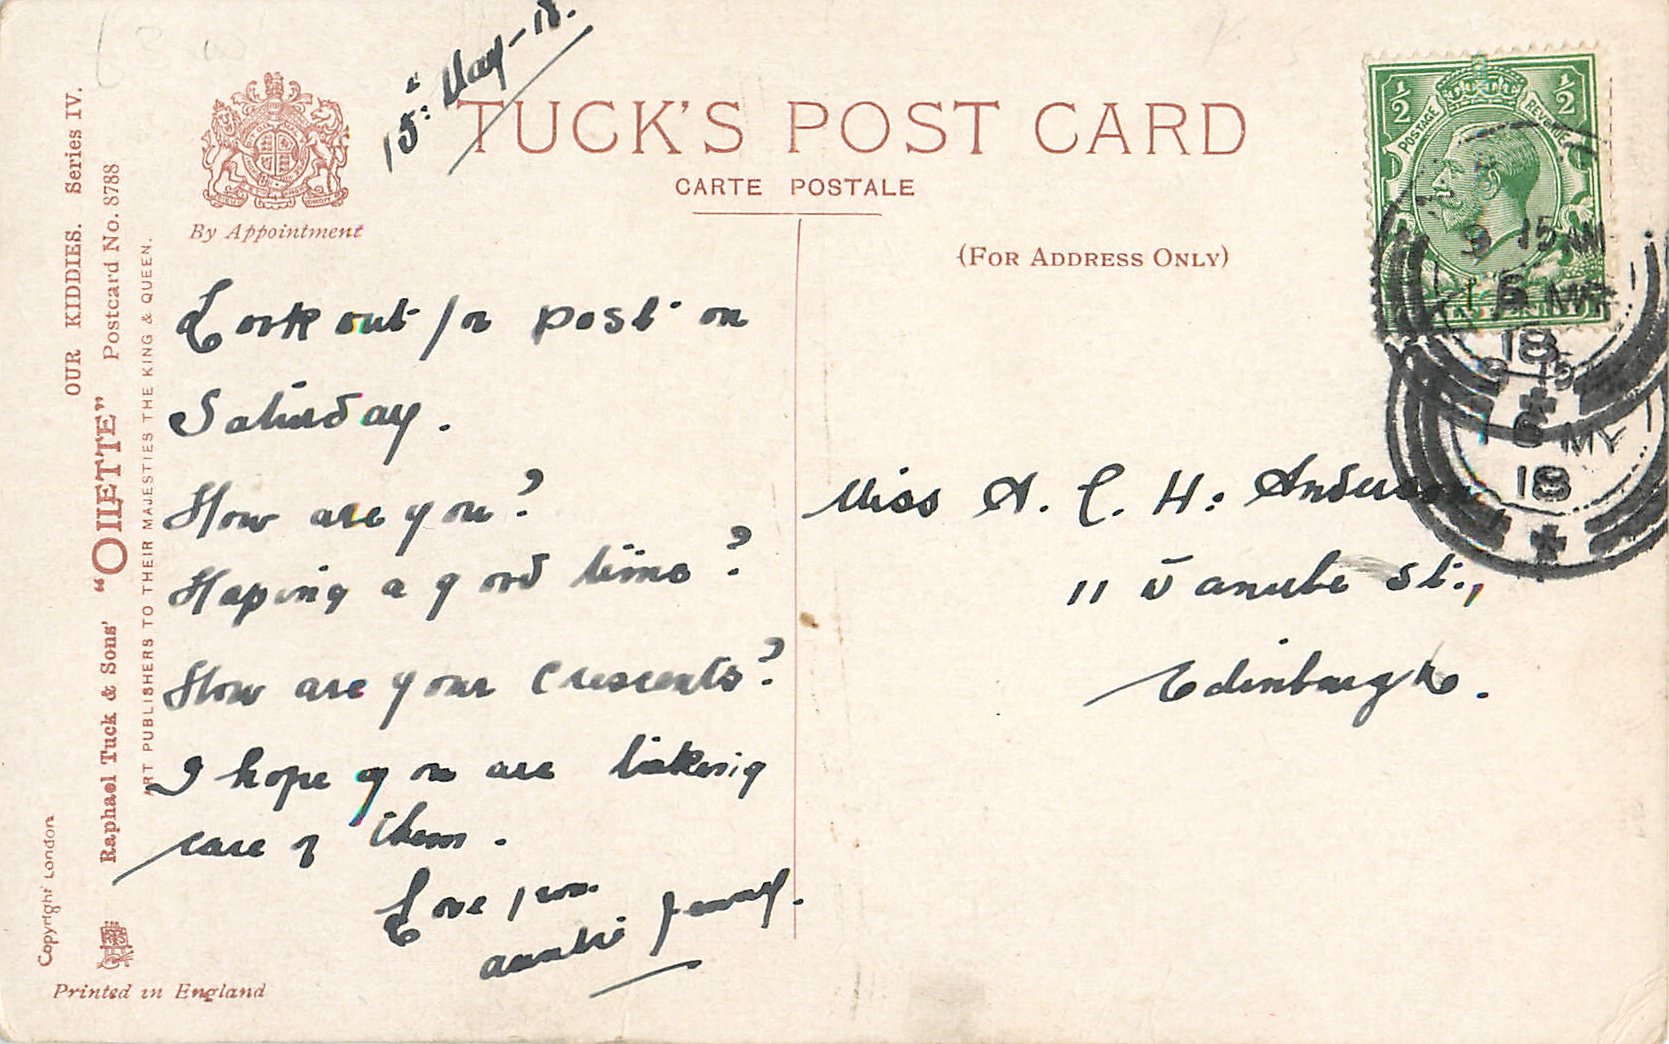 15th May-18.
TUCK'S POST CARD
CARTE POSTALE
By Appointment
(FOR ADDRESS ONLY)
OUR KIDDIES. Series IV.
"OILETTE" Postcard No. 8788
Raphael Tuck & Sons'
ART PUBLISHERS TO THEIR MAJESTIES THE KING & QUEEN.
Copyright London
Printed in England
½ ½
POSTAGE REVENUE
HALFPENNY
9 15 AM
16 MY
18
16 MY
18
Look out for post on
Saturday.
How are you?
Having a good time?
How are your Crescents?
I hope you are taking
care of them.
Love from
auntie Jenny.
Miss A. C. H. Anderson
11 Danube St.,
Edinburgh.